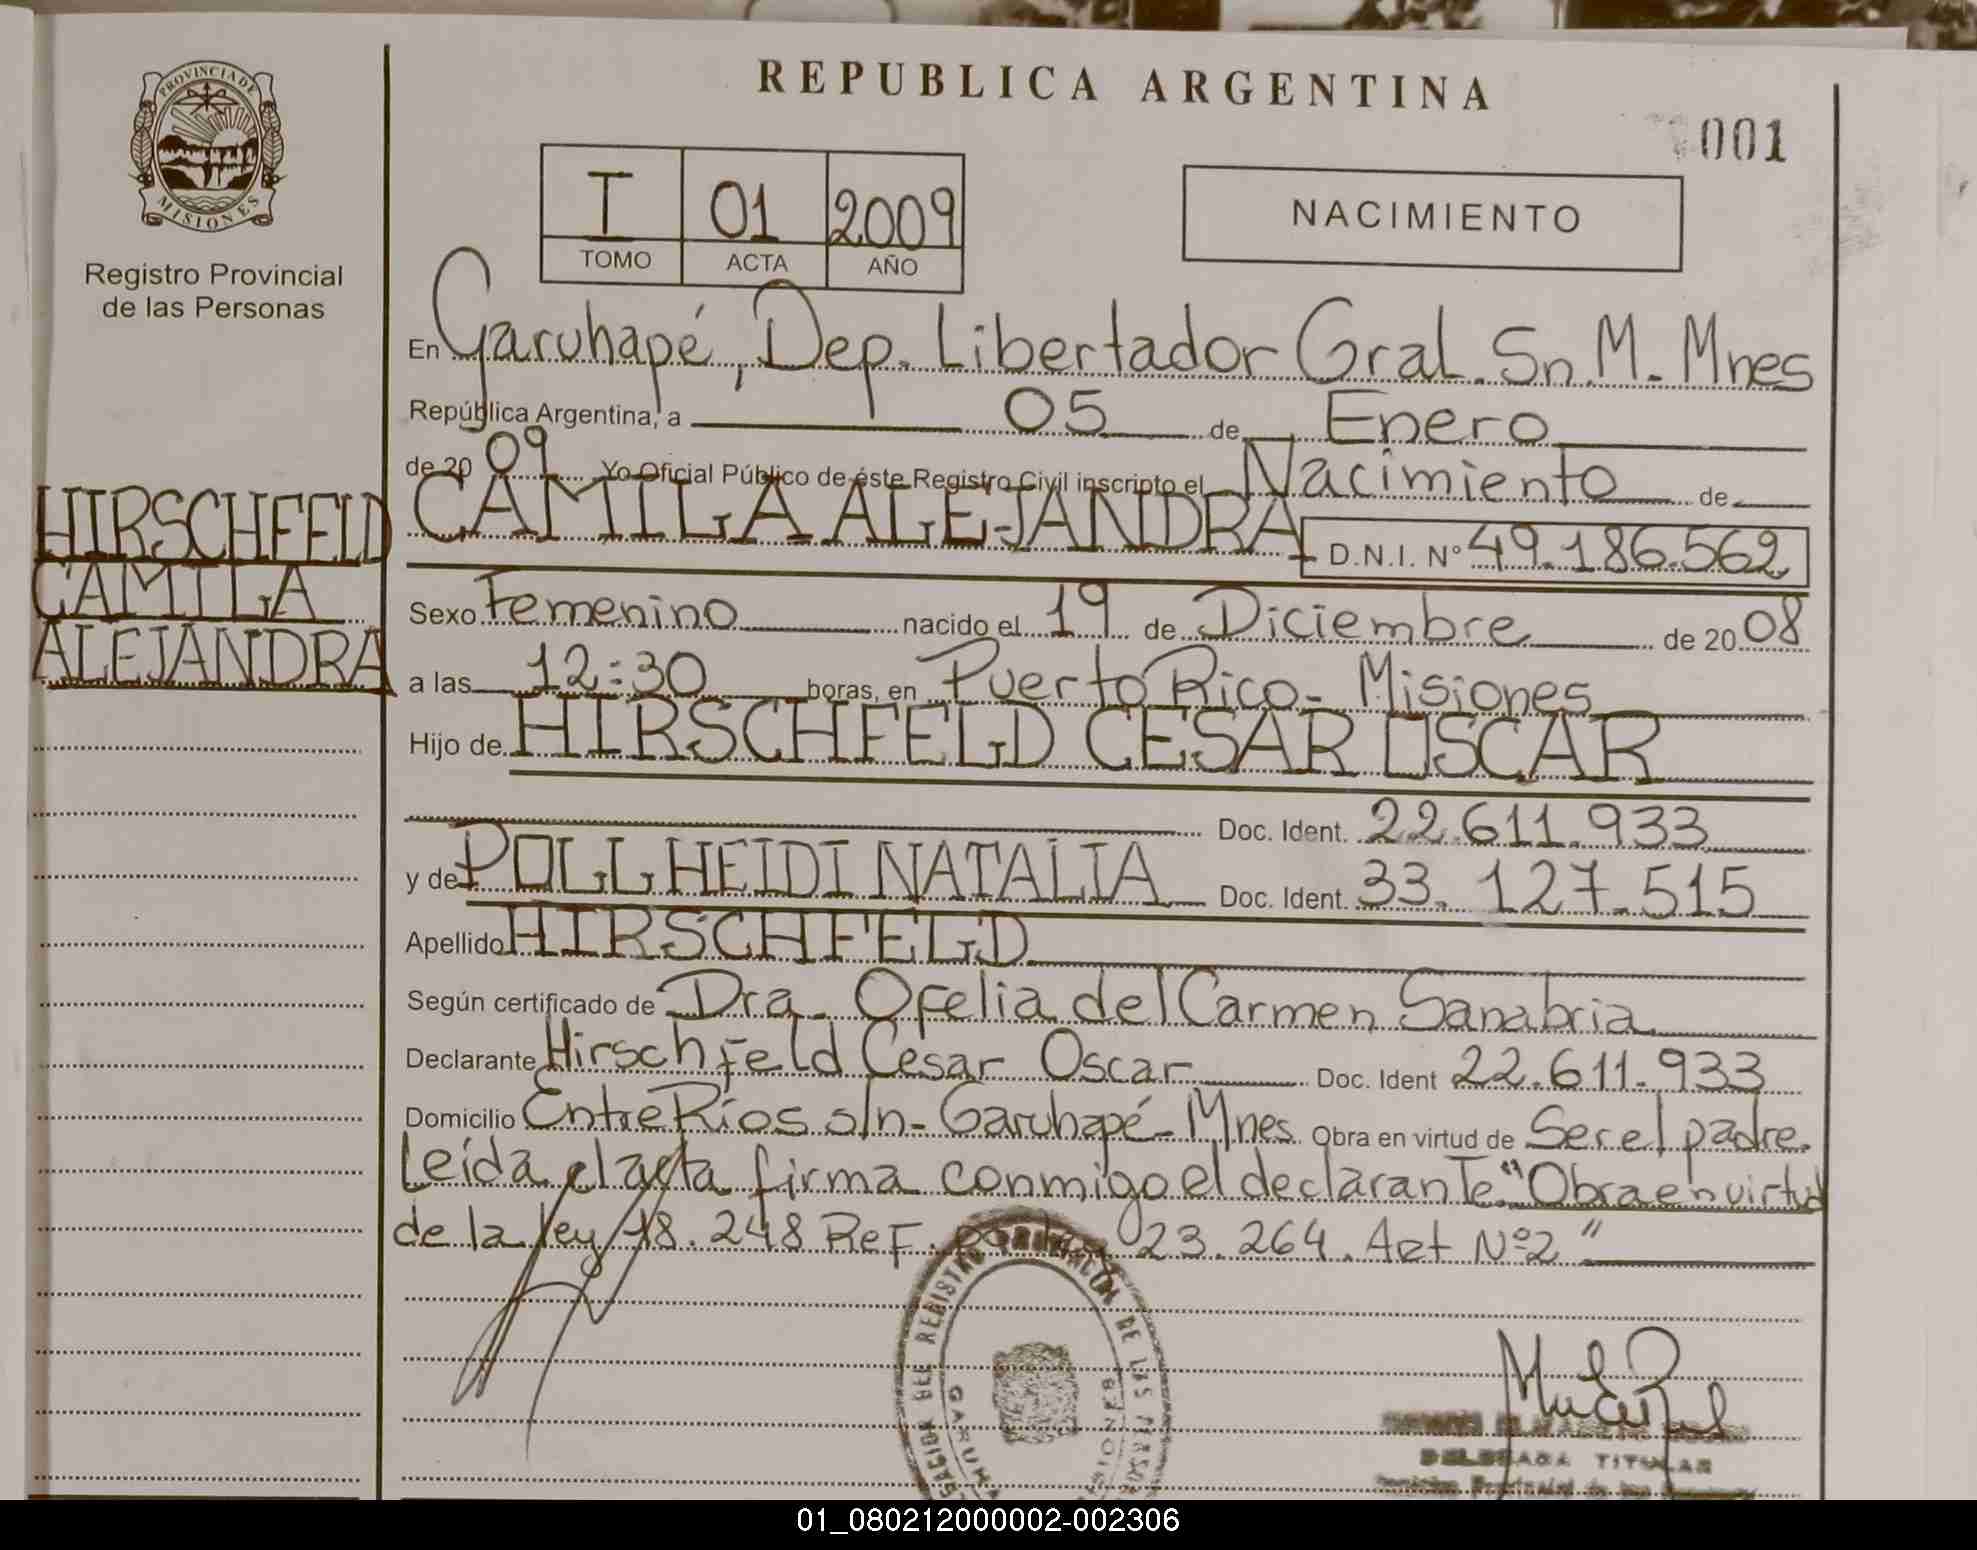 PROVINCIA DE
MISIONES
Registro Provincial
de las Personas
HIRSCHFELD
CAMILA
ALEJANDRA
REPUBLICA ARGENTINA
001
T 01 2009
TOMO ACTA AÑO
NACIMIENTO
En Garuhapé, Dep. Libertador Gral. Sn. M. Mnes
República Argentina, a 05 de Enero
de 20 09 Yo Oficial Público de éste Registro Civil inscripto el Nacimiento de
CAMILA ALEJANDRA D.N.I. Nº 49.186.562
Sexo Femenino nacido el 19 de Diciembre de 20 08
a las 12:30 horas, en Puerto Rico - Misiones
Hijo de HIRSCHFELD CESAR OSCAR
Doc. Ident. 22.611.933
y de POLL HEIDI NATALIA Doc. Ident. 33.127.515
Apellido HIRSCHFELD
Según certificado de Dra. Ofelia del Carmen Sanabria
Declarante Hirschfeld Cesar Oscar Doc. Ident 22.611.933
Domicilio Entre Ríos s/n - Garuhapé - Mnes. Obra en virtud de Ser el padre.
Leída el acta firma conmigo el declarante. "Obra en virtud
de la ley 18.248 Ref. por ley 23.264. Art Nº 2"
DELEGADA TITULAR
01_080212000002-002306